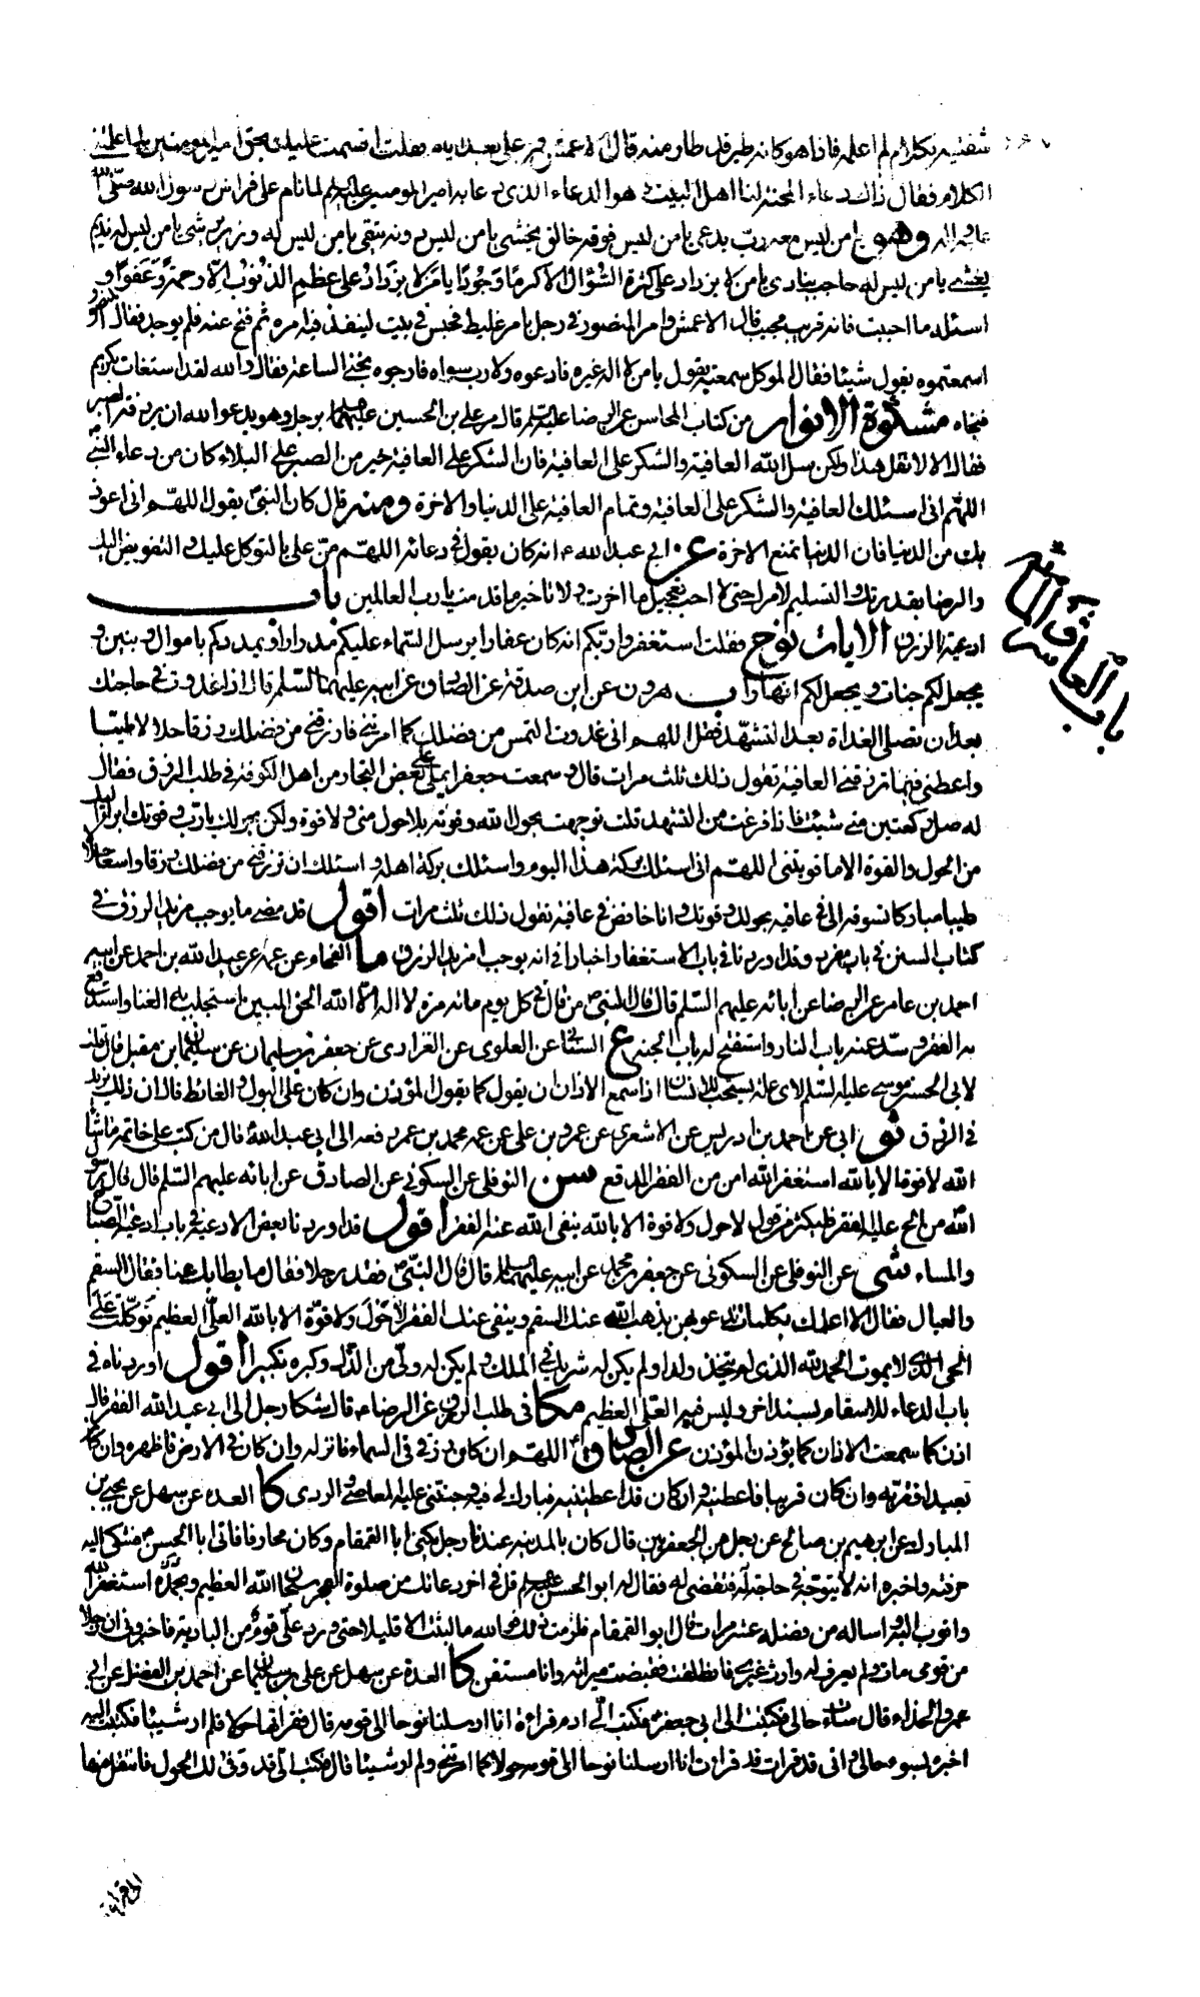 شفتيه بكلام لم اعلمه فاذا هو كانه طير قد طار منه قال الاعمش فمر علي بعد ذلك فقلت اقسمت عليك بحق امير المؤمنين لما علمتني
الكلام فقال ذاك دعاء المحنة لنا اهل البيت وهو الدعاء الذي دعا به امير المؤمنين عليه السلم لما نام على فراش رسول الله صلى الله
عليه واله وهو يا من ليس معه رب يدعى يا من ليس فوقه خالق يخشى يا من ليس دونه يتقى يا من ليس له وزير يا من ليس له نديم
يغشى يا من ليس له حاجب ينادى يا من لا يزداد على كثرة السؤال الا كرما وجودا يا من لا يزداد على عظم الذنوب الا رحمة وعفوا و
اسئله ما احببت فانه قريب مجيب قال الاعمش وامر المنصور في رجل بامر غليظ فحبس في بيت لينفذ فيه امره ثم فتح عنه فلم يوجد فقال المنصور
اسمعتموه يقول شيئا فقال الموكل سمعته يقول يا من لا اله غيره فادعوه ولا رب سواه فارجوه نجني الساعة فقال والله لقد استغاث بكريم
فنجاه مشكوة الانوار من كتاب المحاسن عن الرضا عليه السلم قال مر علي بن الحسين عليهما السلم برجل وهو يدعو الله ان يرزقه الصبر
فقال الا لا تقل هذا ولكن سل الله العافية والشكر على العافية فان الشكر على العافية خير من الصبر على البلاء كان من دعاء النبي
اللهم اني اسئلك العافية والشكر على العافية وتمام العافية على الدنيا والاخرة ومنه قال كان النبي ص يقول اللهم اني اعوذ
بك من الدنيا فان الدنيا تمنع الاخرة عن ابي عبد الله ع انه كان يقول في دعائه اللهم من علي بالتوكل عليك والتفويض اليك
والرضا بقدرتك والتسليم لامرك حتى لا احب تعجيل ما اخرت ولا تاخير ما قدمت يا رب العالمين باب
ادعية الرزق الايات نوح فقلت استغفروا ربكم انه كان غفارا يرسل السماء عليكم مدرارا ويمددكم باموال وبنين و
يجعل لكم جنات ويجعل لكم انهارا ب هرون عن ابن صدقة عن الصادق عن ابيه عليهما السلم قال اذا غدوت في حاجتك
بعد ان تصلي الغداة بعد التشهد فقل اللهم اني غدوت التمس من فضلك كما امرتني فارزقني من فضلك رزقا حلالا طيبا
واعطني فيما ترزقني العافية تقول ذلك ثلث مرات قال وسمعت جعفرا يملي على بعض التجار من اهل الكوفة في طلب الرزق فقال
له صل ركعتين متى شئت فاذا فرغت من التشهد قلت توجهت بحول الله وقوته بلا حول مني ولا قوة ولكن بحولك يا رب وقوتك ابرأ اليك
من الحول والقوة الا ما قويتني اللهم اني اسئلك بركة هذا اليوم واسئلك بركة اهله واسئلك ان ترزقني من فضلك رزقا واسعا حلالا
طيبا مباركا تسوقه الي في عافية بحولك وقوتك وانا خافض في عافية تقول ذلك ثلث مرات اقول قد مضى ما يوجب مزيد الرزق في
كتاب السنن في باب مفرد وقد اوردنا في باب الاستغفار اخبارا في انه يوجب مزيد الرزق ما الفحام عن عمه عن عبد الله بن احمد عن ابيه
احمد بن عامر عن الرضا عن ابائه عليهم السلم قال قال النبي ص من قال في كل يوم مائة مرة لا اله الا الله الحق المبين استجلب به الغنا واستدفع
به الفقر وسد عنه باب النار واستفتح له باب الجنة ع السناني عن العلوي عن الفزاري عن جعفر بن سليمان عن سليمان بن مقبل قال قلت
لابي الحسن موسى عليه السلم لاي علة يستحب للانسان اذا سمع الاذان ان يقول كما يقول المؤذن وان كان على البول والغائط قال ان ذلك يزيد
في الرزق ثو ابي عن احمد بن ادريس عن الاشعري عن عمرو بن علي عن عمه محمد بن عمر رفعه الى ابي عبد الله ع قال من كتب على خاتمه ما شاء
الله لا قوة الا بالله استغفر الله امن من الفقر المدقع سن النوفلي عن السكوني عن الصادق عن ابائه عليهم السلم قال قال رسول
الله من الح عليه الفقر فليكثر من قول لا حول ولا قوة الا بالله ينفي الله عنه الفقر اقول قد اوردنا بعض الادعية في باب ادعية الصباح
والمساء شي عن النوفلي عن السكوني عن جعفر بن محمد عن ابيه عليهما السلم قال قال النبي ص فقد رجلا فقال ما يطا بك عنا فقال السقم
والعيال فقال الا اعلمك بكلمات تدعو بهن يذهب الله عنك السقم وينفي عنك الفقر لا حول ولا قوة الا بالله العلي العظيم توكلت على
الحي الذي لا يموت الحمد لله الذي لم يتخذ ولدا ولم يكن له شريك في الملك ولم يكن له ولي من الذل وكبره تكبيرا اقول اوردناه في
باب الدعاء للاسقام بسند اخر وليس فيه العلي العظيم مكا في طلب الرزق عن الرضا ع قال شكا رجل الى ابي عبد الله الفقر قال
اذن كما سمعت الاذان كما يؤذن المؤذن عن الصادق ع اللهم ان كان رزقي في السماء فانزله وان كان في الارض فاظهره وان كان
بعيدا فقربه وان كان قريبا فاعطنيه وان كان قد اعطيتنيه فبارك لي فيه وجنبني عليه المعاصي والردى كا العدة عن سهل عن يحيى بن
المبارك عن ابرهيم بن صالح عن رجل من الجعفريين قال كان بالمدينة عندنا رجل يكنى ابا القمقام وكان محارفا فاتى ابا الحسن ع فشكى اليه
حرفته واخبره انه لا يتوجه في حاجة له فتقضى له فقال له ابو الحسن عليه السلم قل في اخر دعائك من صلوة الفجر سبحان الله العظيم وبحمده استغفر الله
واتوب اليه واساله من فضله عشر مرات قال ابو القمقام فلزمت ذلك فوالله ما لبثت الا قليلا حتى ورد علي قوم من البادية فاخبروني ان رجلا
من قومي مات ولم يعرف له وارث غيري فانطلقت فقبضت ميراثه وانا مستغن كا العدة عن سهل عن علي بن سليمان عن احمد بن الفضل عن ابي
عمرو الحذاء قال ساءت حالي فكتبت الى ابي جعفر ع فكتب الي ادم قراءة انا ارسلنا نوحا الى قومه قال فقراتها حولا فلم ار شيئا فكتبت اليه
اخبره بسوء حالي واني قد قرات انا ارسلنا نوحا الى قومه حولا كما امرتني ولم ار شيئا قال فكتب الي قد وفى لك الحول فانتقل منها